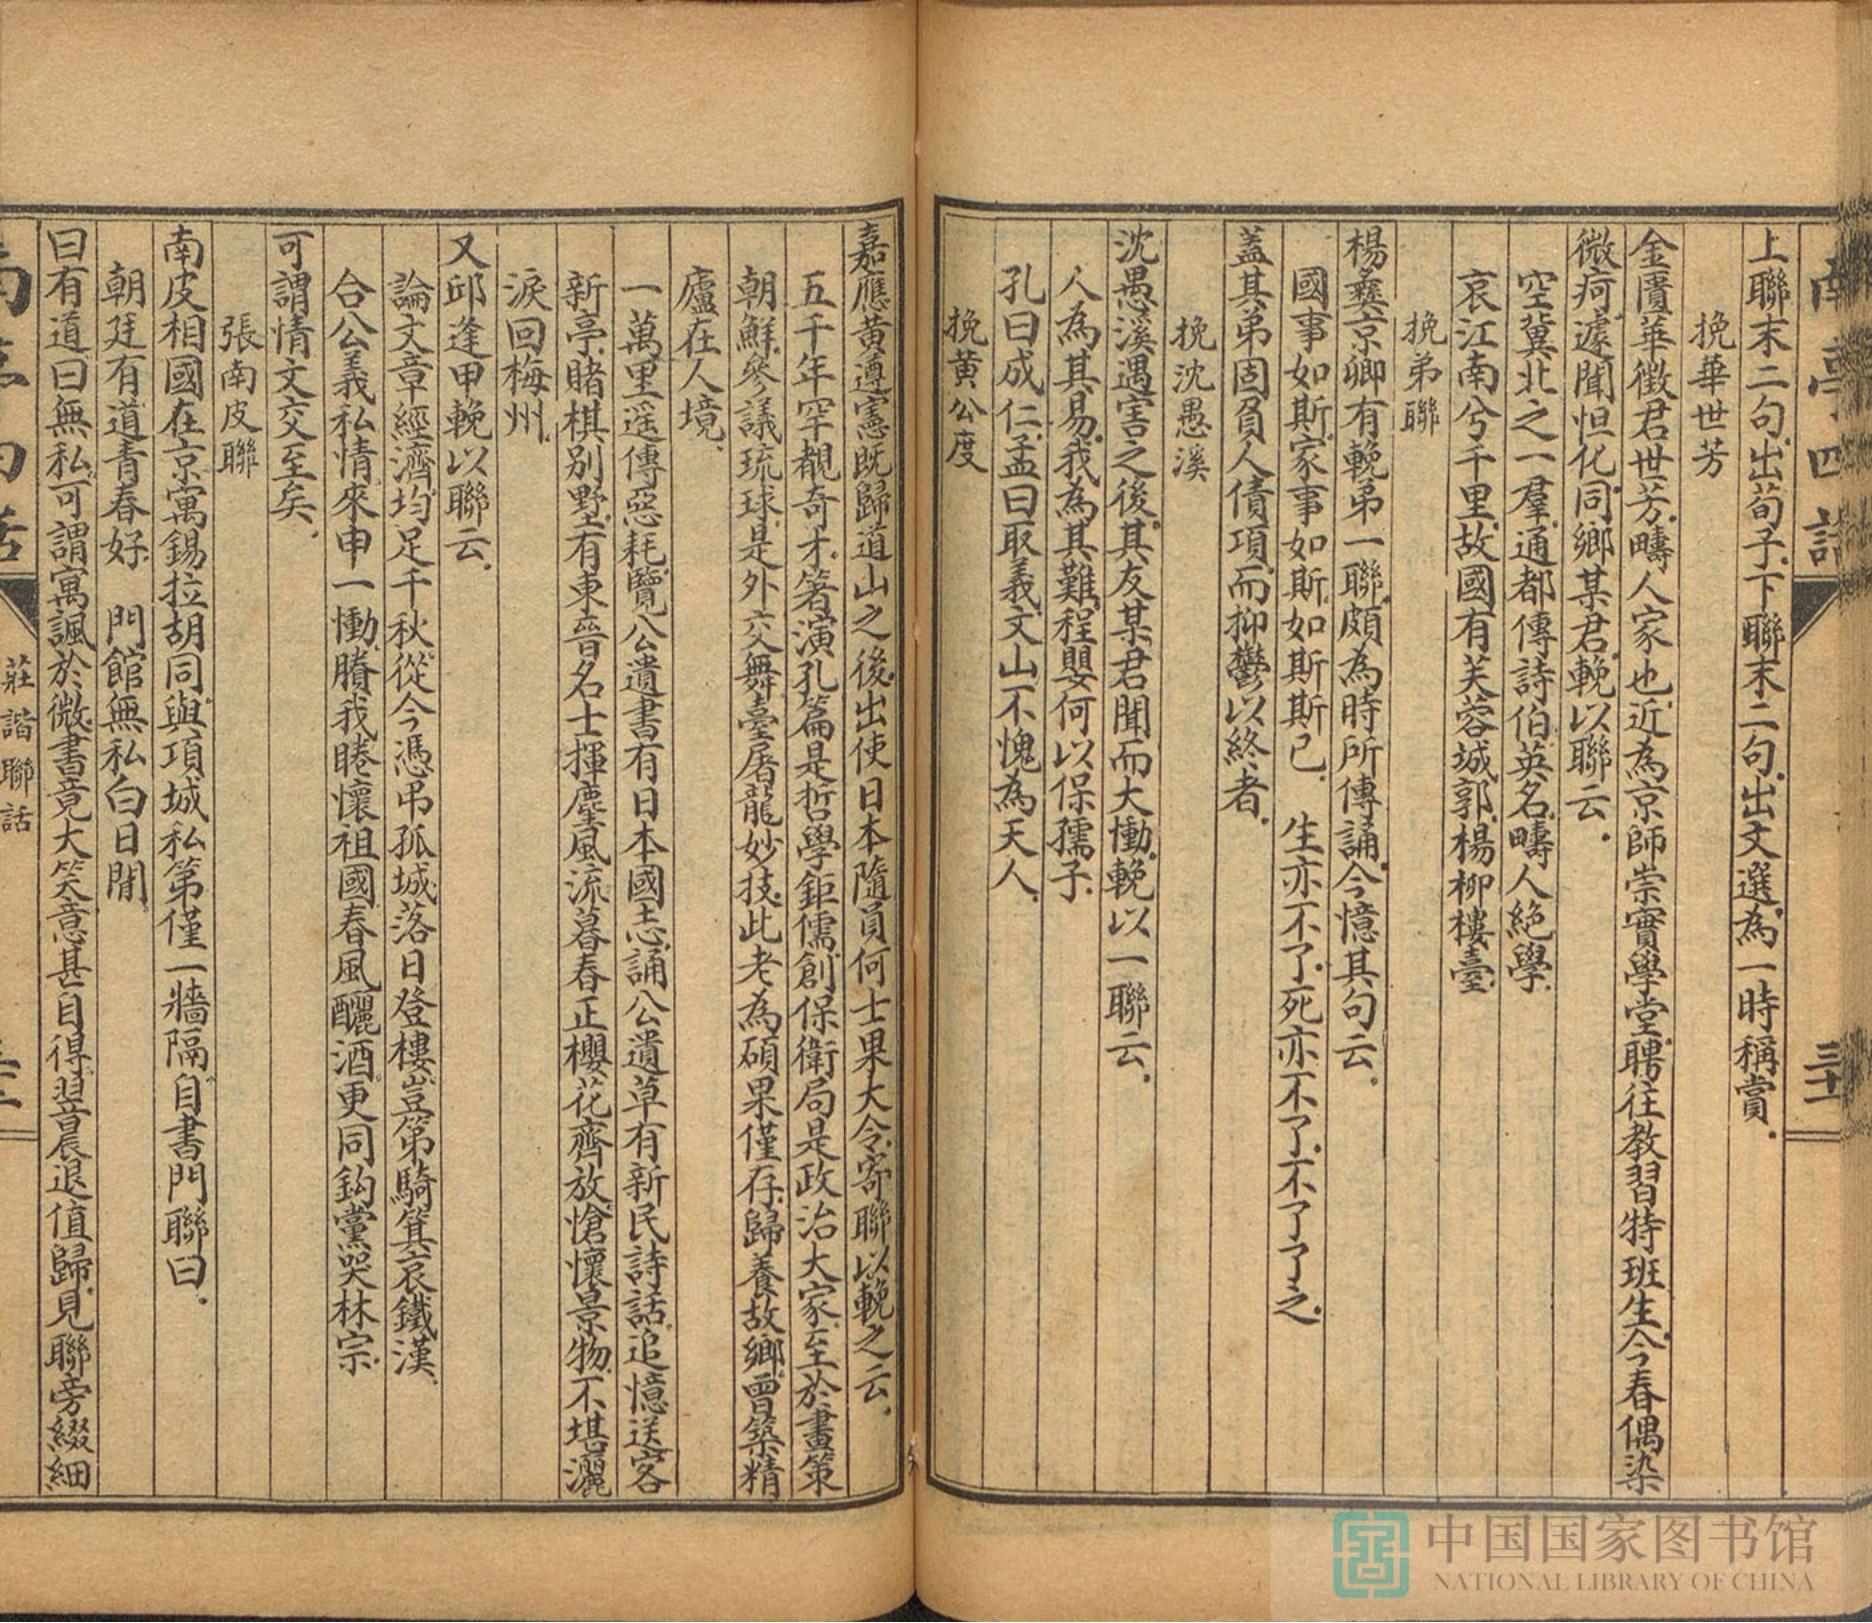 上聯末二句出荀子下聯末二句出文選為一時稱賞.
挽華世芳
金匱華徵君世芳疇人家也近為京師崇實學堂聘往教習特班生今春偶染
微疴遽聞怛化同鄉某君輓以聯云.
空冀北之一羣通都傳詩伯英名疇人絕學.
哀江南兮千里故國有芙蓉城郭楊柳樓臺.
挽弟聯
楊彝京卿有輓弟一聯頗為時所傳誦今憶其句云.
國事如斯家事如斯如斯斯已. 生亦不了死亦不了不了了之.
蓋其弟固負人債項而抑鬱以終者.
挽沈愚溪
沈愚溪遇害之後其友某君聞而大慟輓以一聯云.
人為其易我為其難程嬰何以保孺子.
孔曰成仁孟曰取義文山不愧為天人.
挽黃公度
嘉應黃遵憲既歸道山之後出使日本隨員何士果大令寄聯以輓之云.
五千年罕覯奇才著演孔篇是哲學鉅儒創保衛局是政治大家至於畫策
朝鮮參議琉球是外交舞臺屠龍妙技此老為碩果僅存歸養故鄉曾築精
廬在人境.
一萬里遥傳惡耗覽公遺書有日本國志誦公遺草有新民詩話追憶送客
新亭賭棋別墅有東晉名士揮麈風流暮春正櫻花齊放愴懷景物不堪灑
淚回梅州.
又邱逢甲輓以聯云.
論文章經濟均足千秋從今憑弔孤城落日登樓豈第騎箕哀鐵漢.
合公義私情來申一慟賸我睠懷祖國春風釃酒更同鈎黨哭林宗.
可謂情文交至矣.
張南皮聯
南皮相國在京寓錫拉胡同與項城私第僅一牆隔自書門聯曰.
朝廷有道青春好 門館無私白日閒
曰有道曰無私可謂寓諷於微書竟大笑意甚自得翌晨退值歸見聯旁綴細
南亭四話
莊諧聯話
三十一